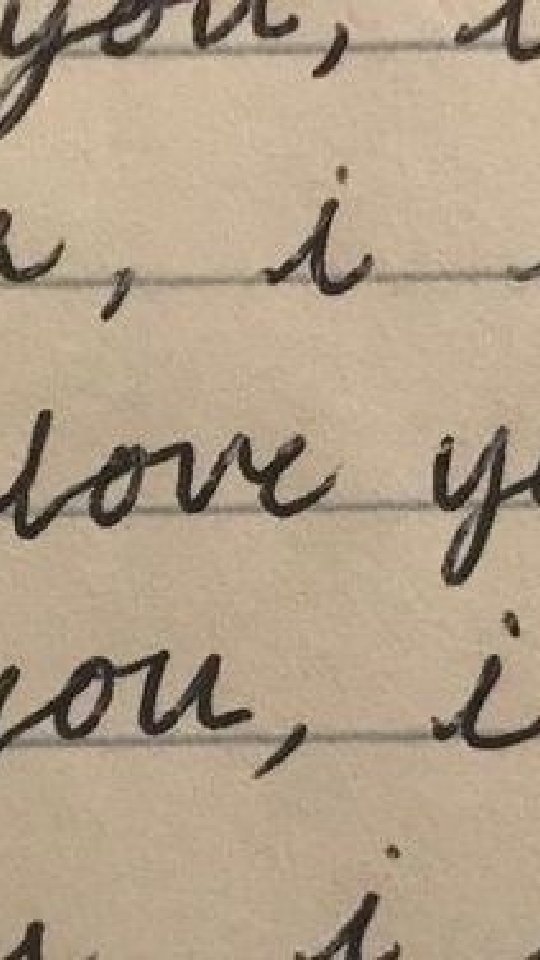 you, i
, i
love
you, i
i